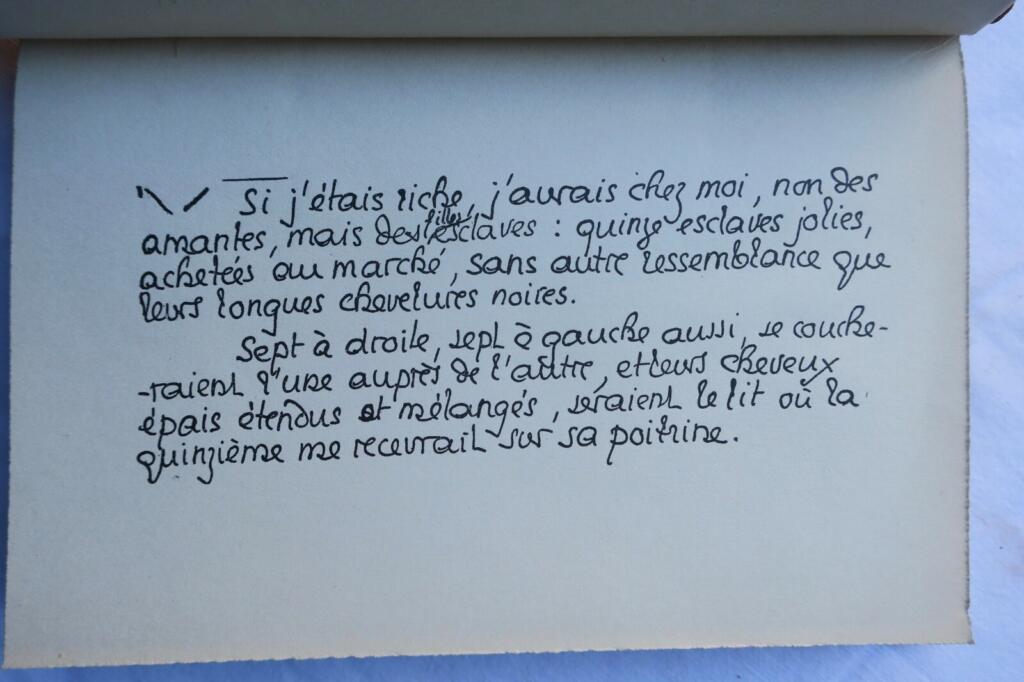 Si j'étais riche, j'aurais chez moi, non des
amantes, mais des filles esclaves : quinze esclaves jolies,
achetées au marché, sans autre ressemblance que
leurs longues chevelures noires.
Sept à droite, sept à gauche aussi, se couche-
-raient l'une auprès de l'autre, et leurs cheveux
épais étendus et mélangés, seraient le lit où la
quinzième me recevrait sur sa poitrine.